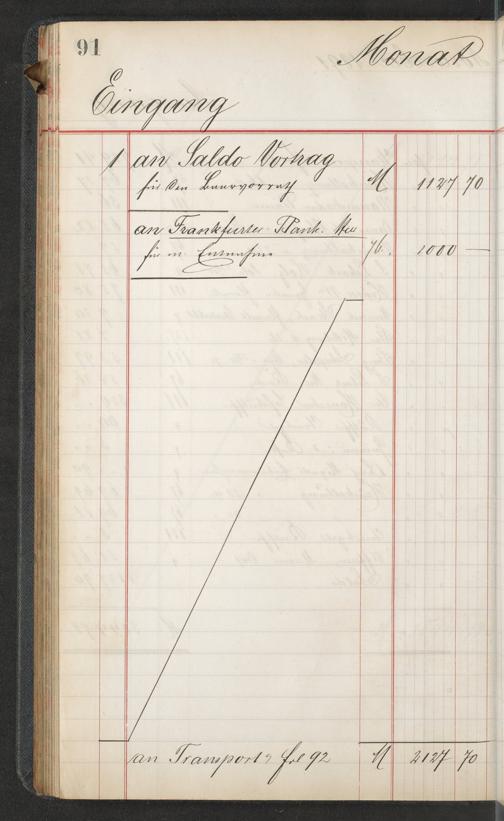 91
Monat
Eingang
1 an Saldo Vortrag
für den Baarvorrath M 1127 70
an Frankfurter Bank.
für m. Entnahme 76. 1000 —
an Transport fol 92 M 2127 70